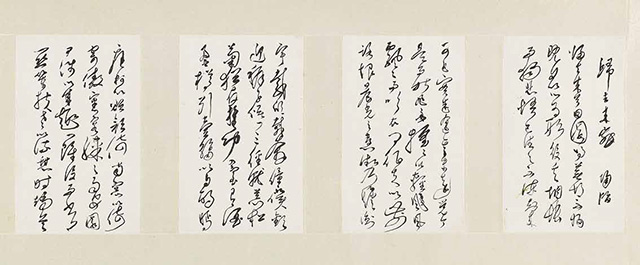 歸去來辭 陶潛
歸去來兮田園將蕪胡不歸
既自以心為形役奚惆悵
而獨悲悟已往之不諫知來者
之可追實迷途其未遠覺今
是而昨非舟搖搖以輕颺風
飄飄而吹衣問征夫以前
路恨晨光之熹微乃瞻衡
宇載欣載奔僮僕歡
迎稚子候門三徑就荒松
菊猶存攜幼入室有酒
盈樽引壺觴以自酌眄
庭柯以怡顏倚南窗以
寄傲審容膝之易安園
日涉以成趣門雖設而常
關策扶老以流憩時矯首